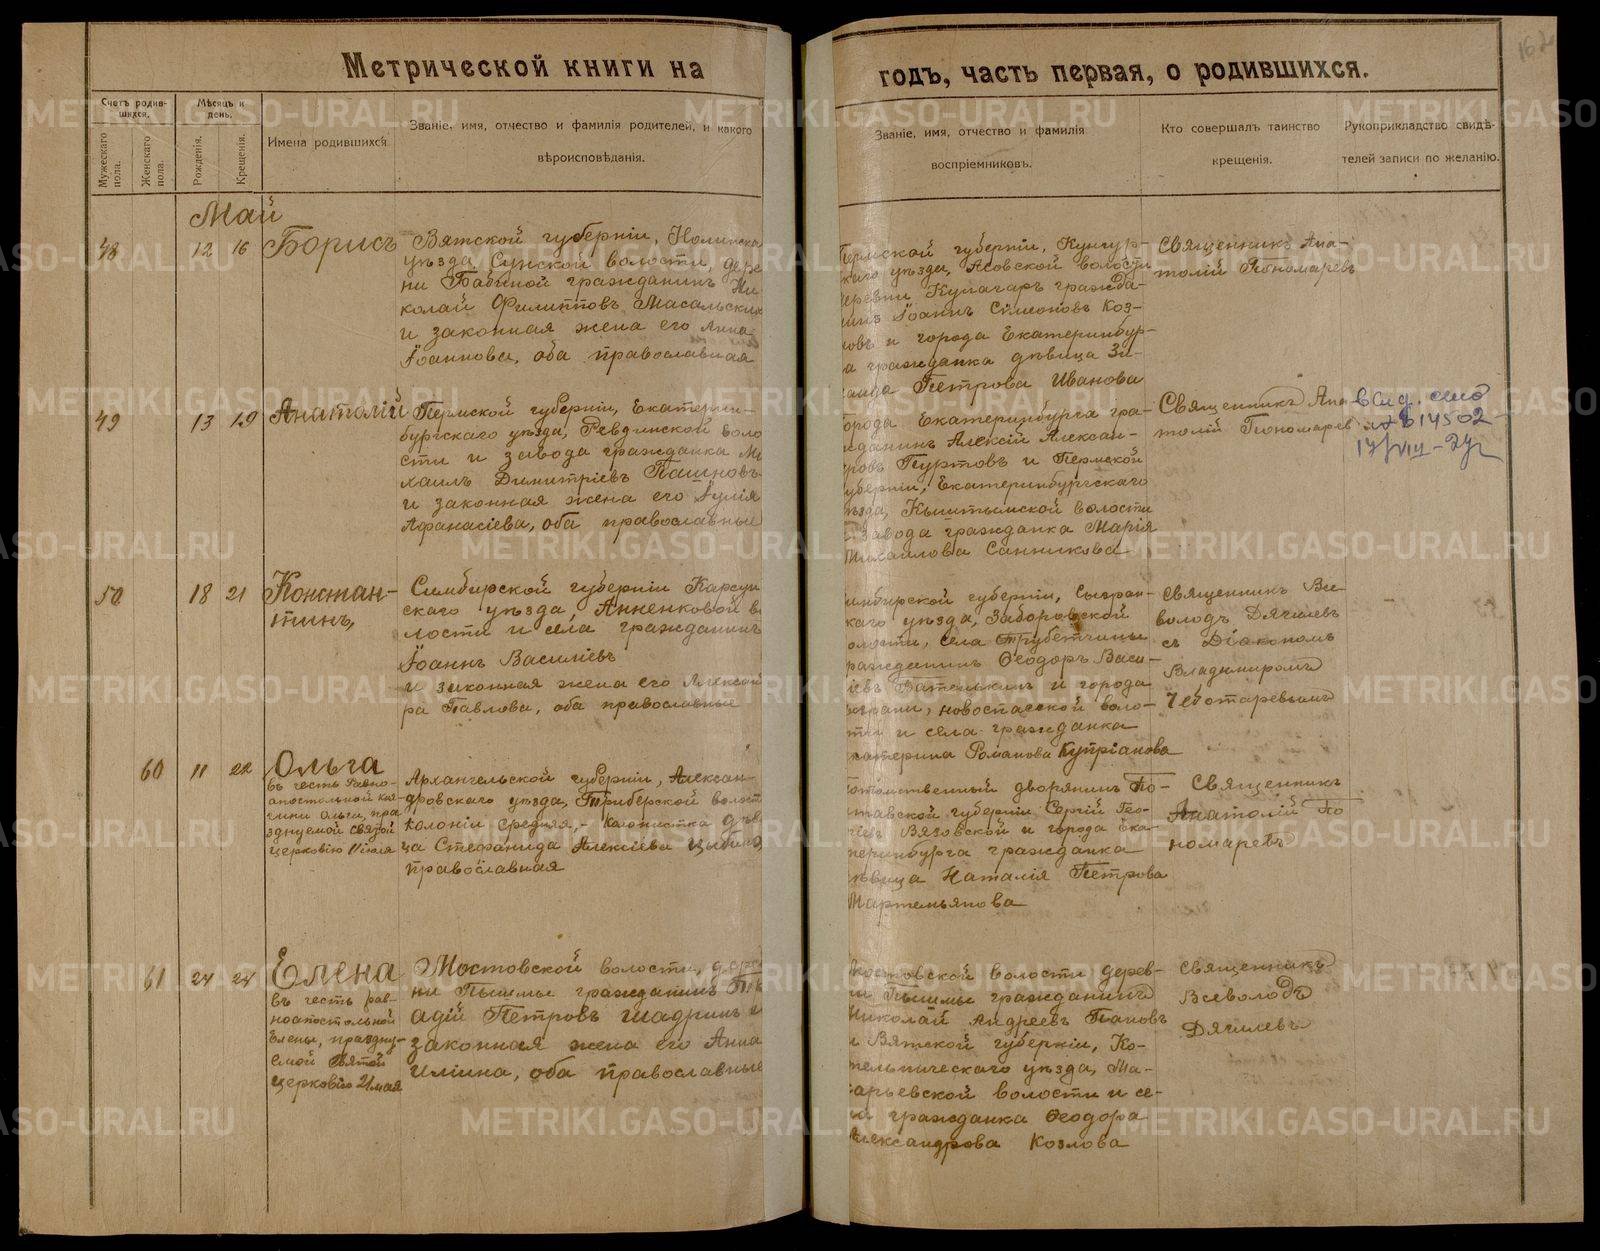 Метрической книги на
годъ, часть первая, о родившихся.
162
Счетъ родив-
шихся.
Мѣсяцъ и
день.
Мужескаго
пола.
Женскаго
пола.
Рожденія.
Крещенія.
Имена родившихся.
Званіе, имя, отчество и фамилія родителей, и какого
вѣроисповѣданія.
Званіе, имя, отчество и фамилія
воспріемниковъ.
Кто совершалъ таинство
крещенія.
Рукоприкладство свидѣ-
телей записи по желанію.
Май
48 12 16 Борисъ
Вятской губерніи, Нолинска
уѣзда Сунской волости, дере
ни Бабиной гражданинъ Ни
колай Филипповъ Масальскихъ
и законная жена его Анна
Іоаннова, оба православная
Пермской губерніи, Кунгур-
скаго уѣзда, Асовской волости
деревни Кулагаръ гражда-
нинъ Іоаннъ Симеоновъ Коз-
ловъ и города Екатеринбур-
га гражданка дѣвица Зи-
наида Петрова Иванова
Священникъ Ана-
толій Пономаревъ
49 13 19 Анатолій
Пермской губерніи, Екатерин-
бургскаго уѣзда, Ревдинской воло
сти и завода гражданка Ми
хаилъ Димитріевъ Пашновъ
и законная жена его Іулія
Афанасіева, оба православные
города Екатеринбурга гра-
жданинъ Алексій Алексан-
дровъ Пуртовъ и Пермской
губерніи, Екатеринбургскаго
уѣзда, Кыштымской волости
и завода гражданка Марія
Михаилова Санникова
Священникъ Ана
толій Пономарев
614502
17/VIII-
50 18 21 Констан-
тинъ,
Симбирской губерніи Карсун
скаго уѣзда, Анненковой во
лости и села гражданинъ
Іоаннъ Василіевъ
и законная жена его Алексан
ра Павлова, оба православные
имбирской губерніи, Сызран-
скаго уѣзда, Заборовской
волости, села Трубетчины
гражданинъ Ѳеодоръ Васи-
ліевъ и города
Сызрани, новоспасской воло-
сти и села гражданка
катерина Романова Купріанова
священникъ Все-
володъ Дягилевъ
съ Діакономъ
Владимиромъ
Чеботаревымъ
60 11 22 Ольга
въ честь Равно-
апостольной кня
гини Ольги, пра
зднуемой святой
церковію 11 іюля
Архангельской губерніи, Алексан-
дровскаго уѣзда, Териберской волост
колоніи средняя, - колонистка дѣв
ца Стефанида Алексіева Цыбина,
православная
потомственный дворянинъ По-
лтавской губерніи Сергій Гео-
ргіевъ Вязовской и города Ека-
теринбурга гражданка
дѣвица Наталія Петрова
Мартемьянова
Священникъ
Анатолій По
номаревъ
61 24 24 Елена
въ честь рав-
ноапостольной
Елены, праздну-
емой Святой
церковію 21 мая
Мостовской волости, дерев
ни Пышмы гражданинъ Ген
адій Петровъ Шадринъ и
законная жена его Анна
Иліина, оба православные
Мостовской волости дерев-
ни Пышмы гражданинъ
Николай Андреевъ Пановъ
и Вятской губерніи, Ко-
тельническаго уѣзда, Ма-
карьевской волости и се-
ла гражданка Ѳеодора
Александрова Козлова
священникъ
Всеволодъ
Дягилевъ
METRIKI.GASO-URAL.RU